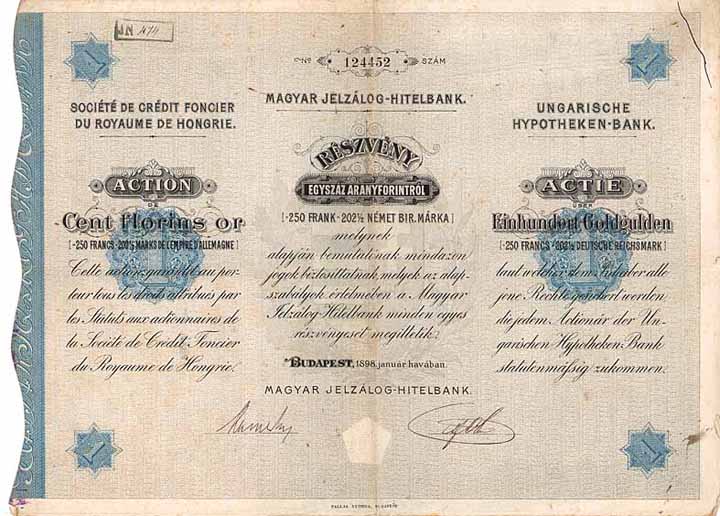 JN 474
No 124452 SZÁM
MAGYAR JELZÁLOG-HITELBANK.
RÉSZVÉNY
EGYSZÁZ ARANYFORINTRÓL
[=250 FRANK=202½ NÉMET BIR. MÁRKA]
melynek
alapján bemutatónak mindazon
jogok biztosíttatnak, melyek az alap-
szabályok értelmében a Magyar
Jelzálog-Hitelbank minden egyes
részvényeset megilletik.
BUDAPEST, 1898. január havában.
MAGYAR JELZÁLOG-HITELBANK.
SOCIÉTÉ DE CRÉDIT FONCIER
DU ROYAUME DE HONGRIE.
ACTION
DE
Cent florins or
[=250 FRANCS=202½ MARKS DE L'EMPIRE D'ALLEMAGNE]
Cette action garantit au por-
teur tous les droits attribués par
les Statuts aux actionnaires de
la Société de Crédit Foncier
du Royaume de Hongrie.
UNGARISCHE
HYPOTHEKEN-BANK.
ACTIE
ÜBER
Einhundert Goldgulden
[=250 FRANCS=202½ DEUTSCHE REICHSMARK]
laut welcher dem Inhaber alle
jene Rechte gesichert werden
die jedem Actionär der Un-
garischen Hypotheken-Bank
statutenmäßig zukommen.
1
1
1
1
1
1
PALLAS NYOMDA, BUDAPEST